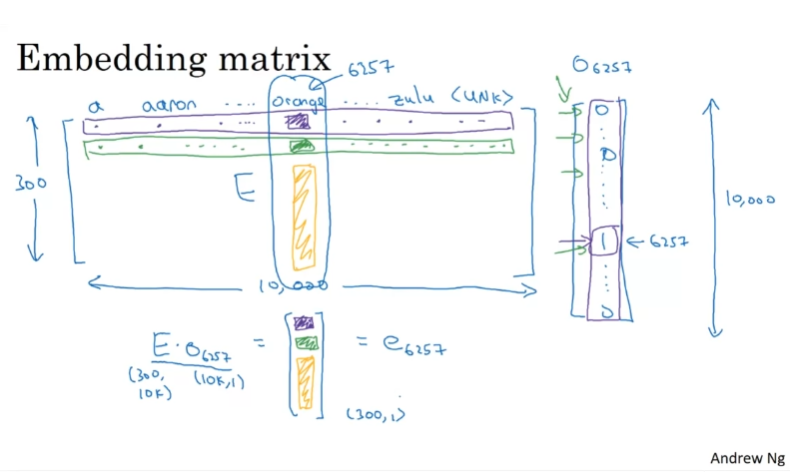 Embedding matrix
6257
O6257
a aaron .... orange .... zulu <UNK>
300
E
10,000
0
0
1 ← 6257
0
10,000
E · O6257 = [ ] = e6257
(300, 10K) (10K,1)
(300,1)
Andrew Ng